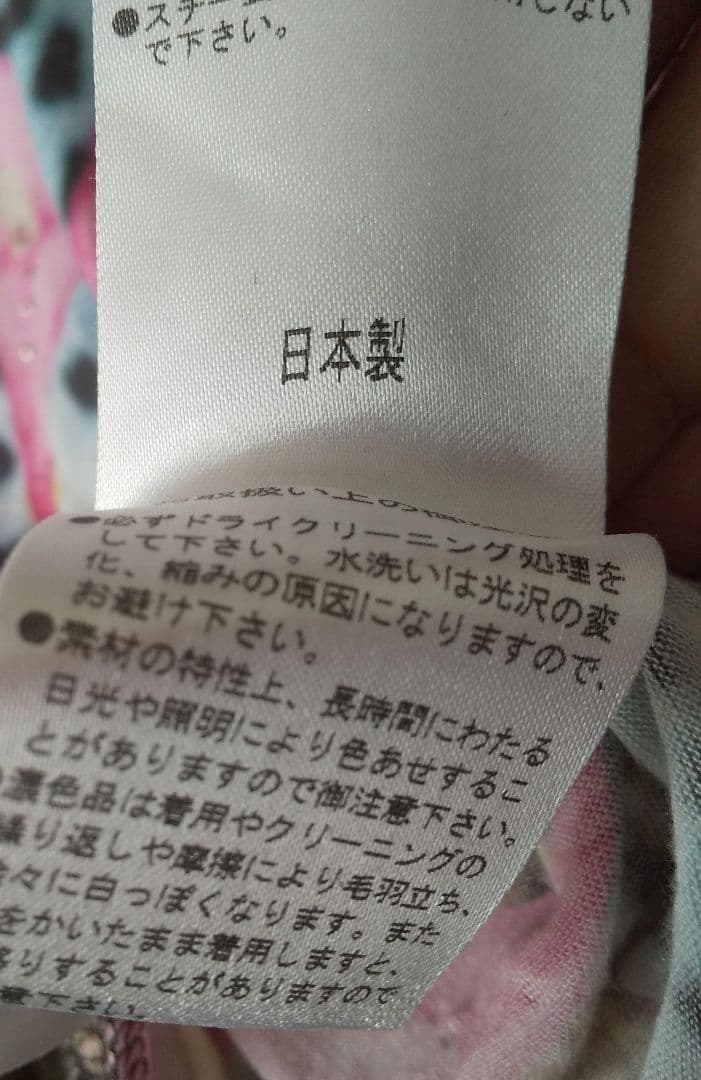 ●スチー
しない
で下さい。
日本製
取扱い上の
●必ずドライクリーニング処理を
して下さい。水洗いは光沢の変
化、縮みの原因になりますので、
お避け下さい。
●素材の特性上、長時間にわたる
日光や照明により色あせするこ
とがありますので御注意下さい。
濃色品は着用やクリーニングの
繰り返しや摩擦により毛羽立ち、
々に白っぽくなります。また
をかいたまま着用しますと、
移りすることがありますので
意下さい。